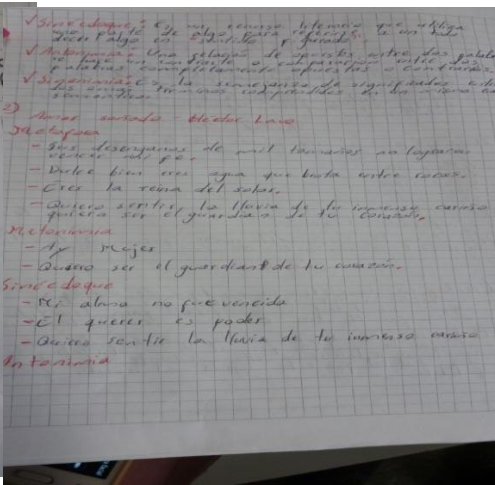 ✓ Sinecdoque: Es un recurso literario que utiliza
una parte de algo para referirse a un todo
decir algo en sentido figurado.
✓ Antonimia: Una relación de opuestos entre dos palabras
se hace un contraste o comparación entre dos
palabras completamente opuestas o contrarias.
✓ Sinonimia: Es la semejanza de significados
dos términos comprendidos en un mismo
2)
Amor soñado Hector Lavo
Metafora
- Sus desengaños de mil tamaños no lograron
vencer mi fe.
- Dulce bien eres agua que brota entre rocas.
- Eres la reina del solar.
- Quiero sentir la lluvia de tu inmenso cariño
quiero ser el guardian de tu corazón.
Metonimia
- Ay mujer
- Quiero ser el guardian de tu corazón.
Sinecdoque
- Mi alma no fue vencida
- El querer es poder
- Quiero sentir la lluvia de tu inmenso cariño
Antonimia